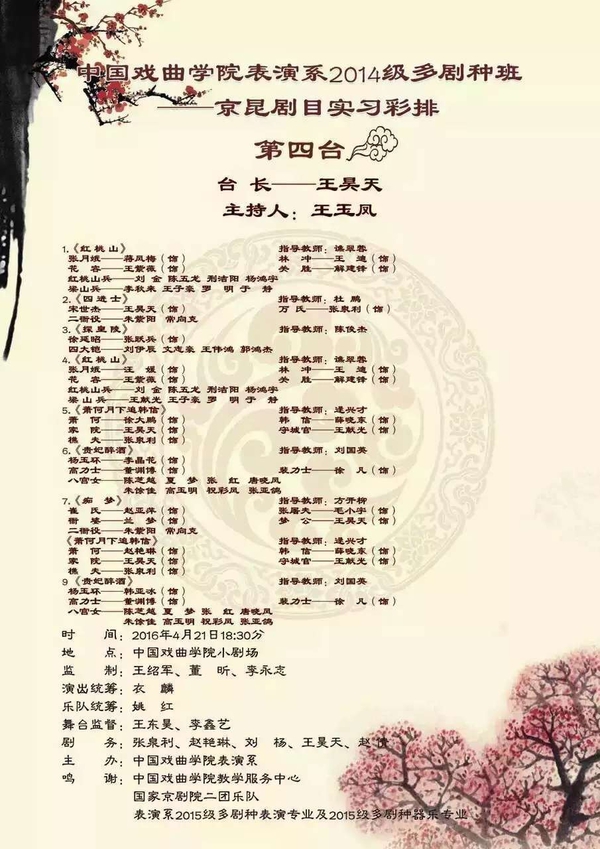 中国戏曲学院表演系2014级多剧种班
——京昆剧目实习彩排
第四台
台 长——王昊天
主持人：王玉凤
1.《红桃山》 指导教师：谯翠蓉
张月娥——蒋凤梅（饰） 林 冲——王 迪（饰）
花 容——王紫薇（饰） 关 胜——解建锋（饰）
红桃山兵——刘 金 陈五龙 荆洁阳 杨鸿宇
梁山兵——李秋来 王子豪 罗 明 于 静
2.《四进士》 指导教师：杜 鹏
宋世杰——王昊天（饰） 万 氏——张泉利（饰）
二衙役——朱紫阳 常向克
3.《探皇陵》 指导教师：陈俊杰
徐延昭——张跃兵（饰）
四大铠——刘伊辰 文志豪 王伟鸿 郭鸿杰
4.《红桃山》 指导教师：谯翠蓉
张月娥——汪 媛（饰） 林 冲——王 迪（饰）
花 容——王紫薇（饰） 关 胜——解建锋（饰）
红桃山兵——刘 金 陈五龙 荆洁阳 杨鸿宇
梁 山 兵——王献光 王子豪 罗 明 于 静
5.《萧何月下追韩信》 指导教师：逯兴才
萧 何——徐大鹏（饰） 韩 信——薛晓东（饰）
家 院——王昊天（饰） 守城官——王献光（饰）
樵 夫——张泉利（饰）
6.《贵妃醉酒》 指导教师：刘国英
杨玉环——李晶花（饰）
高力士——董渊博（饰） 裴力士——徐 凡（饰）
八宫女——陈芝越 夏 梦 张 红 唐晓凤
朱徐佳 高玉明 祝彩凤 张亚鸽
7.《痴 梦》 指导教师：方开柳
崔 氏——赵亚萍（饰） 张屠夫——毛小宇（饰）
衙 婆——兰 梦（饰） 梦 公——王昊天（饰）
二衙役——朱紫阳 常向克
《萧何月下追韩信》 指导教师：逯兴才
萧 何——赵艳琳（饰） 韩 信——薛晓东（饰）
家 院——王昊天（饰） 守城官——王献光（饰）
樵 夫——张泉利（饰）
9《贵妃醉酒》 指导教师：刘国英
杨玉环——韩亚冰（饰）
高力士——董渊博（饰） 裴力士——徐 凡（饰）
八宫女——陈芝越 夏 梦 张 红 唐晓凤
朱徐佳 高玉明 祝彩凤 张亚鸽
时 间：2016年4月21日18:30分
地 点：中国戏曲学院小剧场
监 制：王绍军、董 昕、李永志
演出统筹：衣 麟
乐队统筹：姚 红
舞台监督：王东昊、李鑫艺
剧 务：张泉利、赵艳琳、刘 杨、王昊天、赵 倩
主 办：中国戏曲学院表演系
鸣 谢：中国戏曲学院教学服务中心
国家京剧院二团乐队
表演系2015级多剧种表演专业及2015级多剧种器乐专业